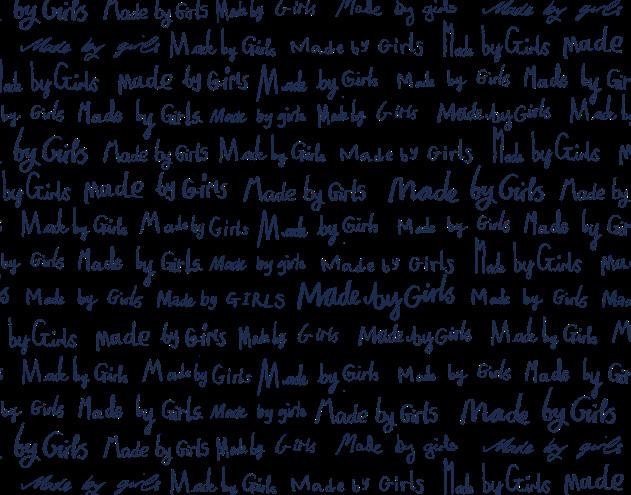 by Girls Made by Girls Made by Girls Made by girls Made by girls
Made by girls Made by Girls Made by Girls Made by Girls Made
by Girls Made by Girls Made by Girls Made by Girls Made by Gir
by Girls Made by Girls Made by girls Made by Girls Made by Girls Made b
by Girls Made by Girls Made by Girls Made by Girls Made by Girls
by Girls Made by Girls Made by Girls Made by Girls Made by
Made by Girls Made by Girls Made by Girls Made by Girls Made by Gir
by Girls Made by Girls Made by girls Made by Girls Made by Girls Ma
s Made by Girls Made by GIRLS Made by Girls Made by Girls Ma
by Girls Made by Girls Made by Girls Made by Girls Made by Girls M
Made by Girls Made by Girls Made by Girls Made by Girls Made by Gir
by Girls Made by Girls Made by girls Made by Girls Made by Girls
by Girls Made by Girls Made by Girls Made by girls Made by girls
Made by girls Made by Girls Made by Girls Made by Girls Made